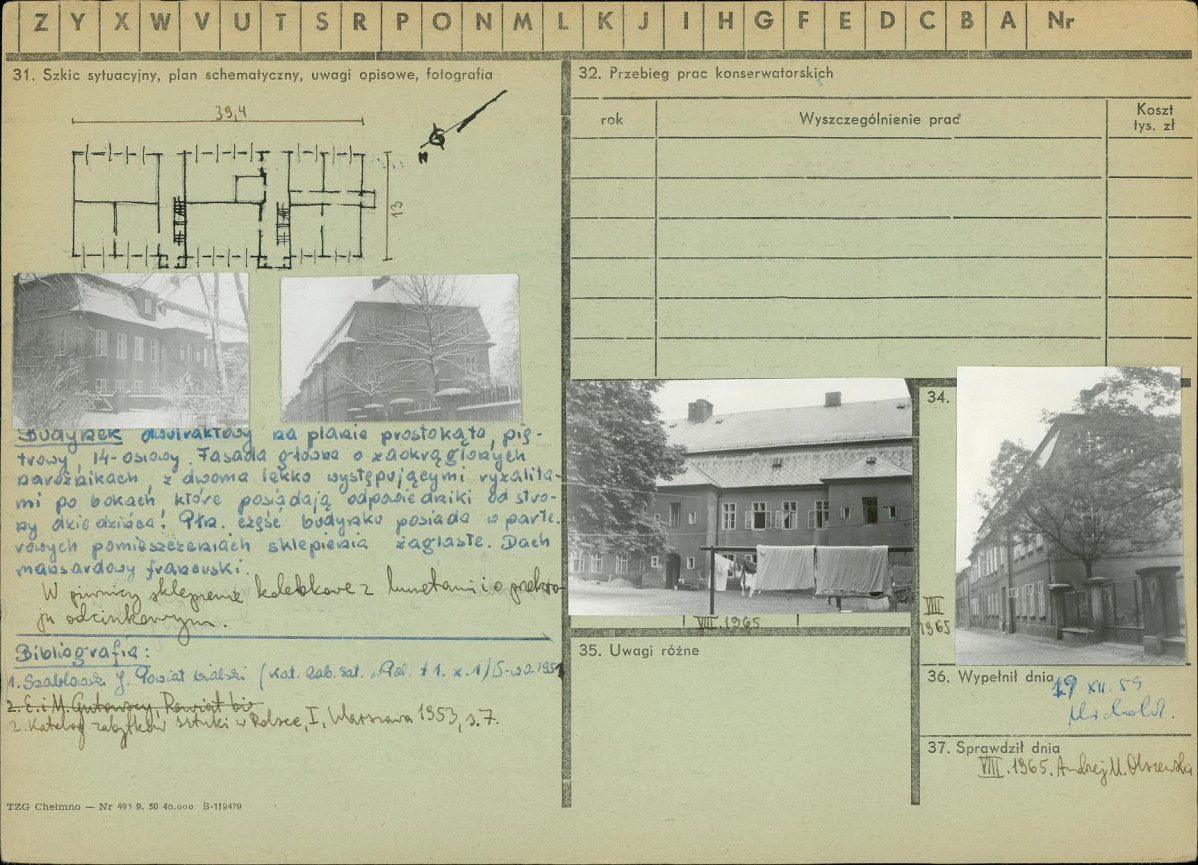 Z Y X W V U T S R P O N M L K J I H G F E D C B A Nr
31. Szkic sytuacyjny, plan schematyczny, uwagi opisowe, fotografia
39,4
13
N
Budynek dwutraktowy na planie prostokąta, pię-
trowy, 14-osiowy. Fasada główna o zaokrąglonych
narożnikach, z dwoma lekko występującymi ryzalita-
mi po bokach, które posiadają odpowiedniki od stro-
ny dziedzińca. Płn. część budynku posiada w parte-
rowych pomieszczeniach sklepienia żaglaste. Dach
mansardowy francuski.
W piwnicy sklepienie kolebkowe z lunetami i o przekro-
ju odcinkowym.
Bibliografia:
1. Szablowski J. Powiat bialski (Kat. zab. szt. Pol. t 1. z. 1)
2. E. i M. Gutowscy, Powiat
2. Katalog zabytków sztuki w Polsce, I, Warszawa 1953, s. 7.
TZG Chełmno — Nr 495 9. 50 40.000 B-119479
32. Przebieg prac konserwatorskich
rok
Wyszczególnienie prac
Koszt
tys. zł
VIII.1965
34.
VIII
1965
35. Uwagi różne
36. Wypełnił dnia
19 XII. 59
37. Sprawdził dnia
VIII.1965. Andrzej M. Olszewski